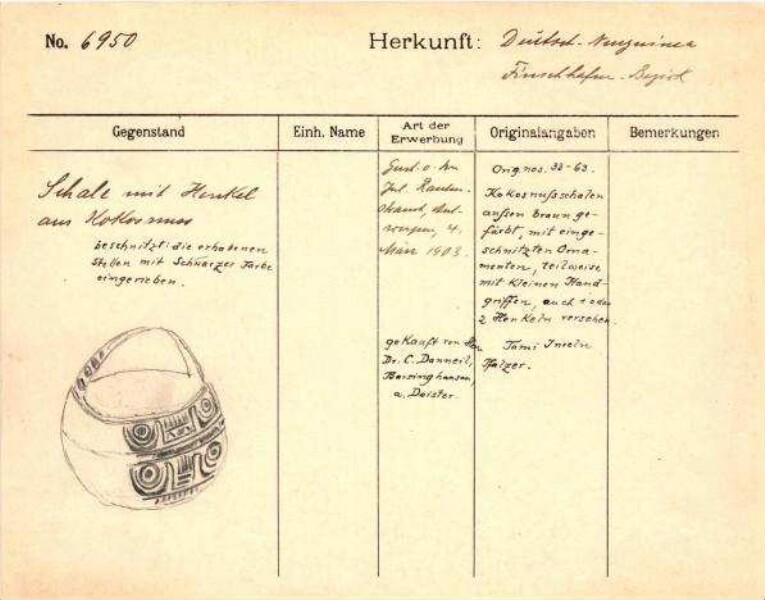 No. 6950
Herkunft: Deutsch-Neuguinea
Finschhafen-Bezirk
Gegenstand
Einh. Name
Art der Erwerbung
Originalangaben
Bemerkungen
Schale mit Henkel
aus Kokosnuss
beschnitzt: die erhabenen
Stellen mit Schwarzer Farbe
eingerieben.
Jul.
4.
März 1903.
gekauft von
Dr. C. Danneil,
Barsinghausen,
a. Deister.
Orig. nos. 33-63.
Kokosnußschalen
außen braun ge-
färbt, mit einge-
schnitzten Orna-
menten, teilweise
mit kleinen Hand-
griffen, auch 1 oder
2 Henkeln versehen.
Tami Inseln